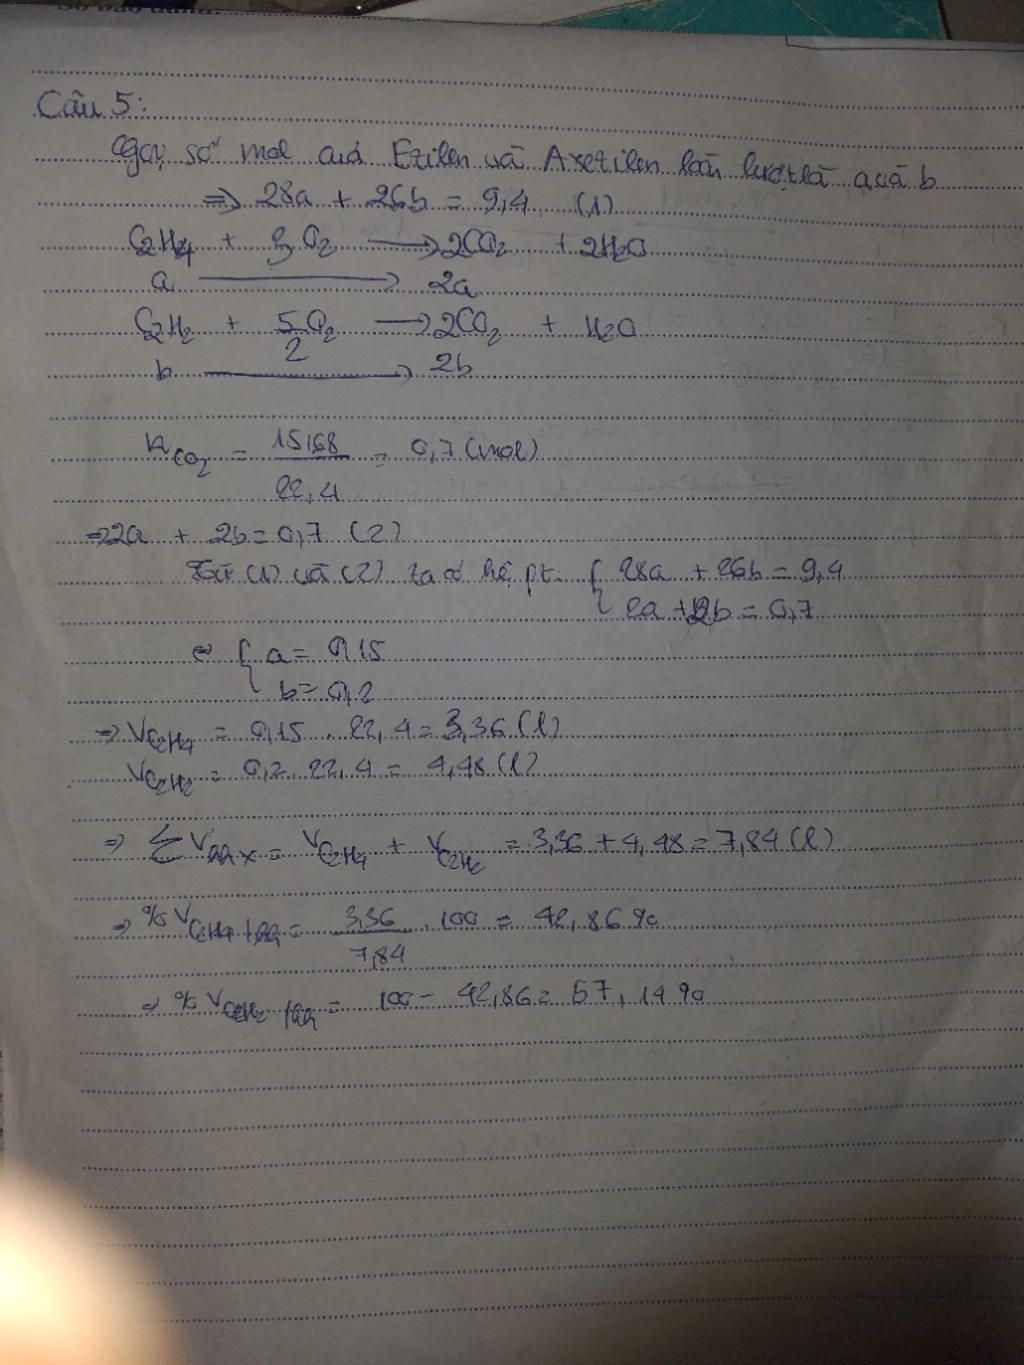 Số báo danh:
Câu 5:
Gọi số mol của Etilen và Axetilen lần lượt là a và b
=> 28a + 26b = 9,4 (1)
C2H4 + 3O2 → 2CO2 + 2H2O
a → 2a
C2H2 + 5/2 O2 → 2CO2 + H2O
b → 2b
nCO2 = 15,68/22,4 = 0,7 (mol)
=> 2a + 2b = 0,7 (2)
Từ (1) và (2) ta có hệ pt: { 28a + 26b = 9,4
2a + 2b = 0,7
⇔ { a = 0,15
b = 0,2
=> VC2H4 = 0,15 . 22,4 = 3,36 (l)
VC2H2 = 0,2 . 22,4 = 4,48 (l)
=> ΣVhh x = VC2H4 + VC2H2 = 3,36 + 4,48 = 7,84 (l)
=> %VC2H4/hh = 3,36/7,84 . 100 = 42,86%
=> %VC2H2/hh = 100 - 42,86 = 57,14%